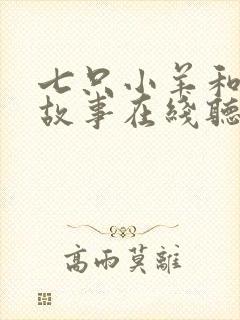 七只小羊和
故事在线听
高雨莫離